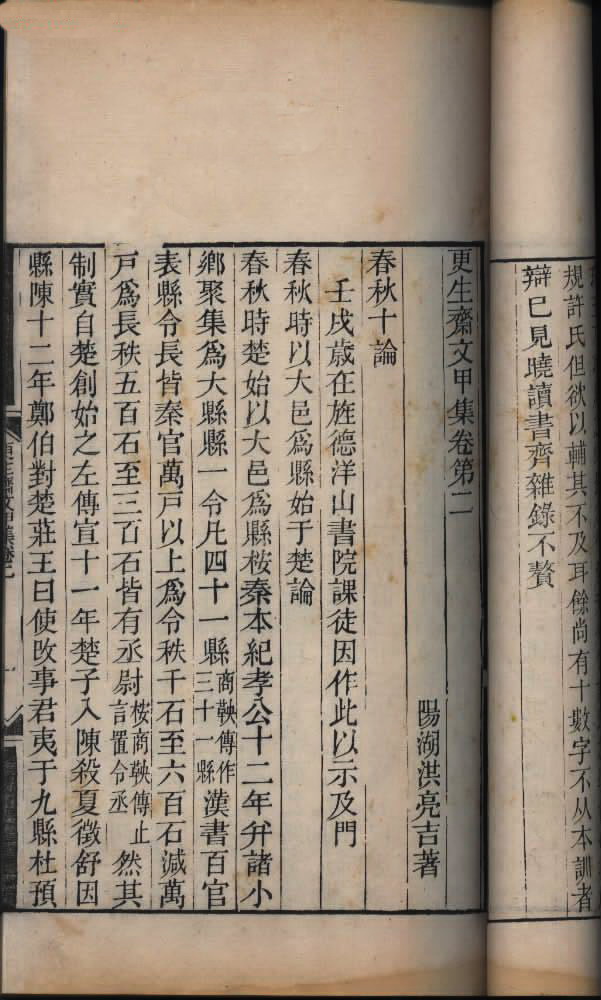 規許氏但欲以輔其不及耳餘尚有十數字不从本訓者
辯已見曉讀書齊雜錄不贅
更生齋文甲集卷第二
陽湖洪亮吉著
春秋十論
壬戌歲在旌德洋山書院課徒因作此以示及門
春秋時以大邑爲縣始于楚論
春秋時楚始以大邑爲縣桉秦本紀孝公十二年幷諸小
鄉聚集爲大縣縣一令凡四十一縣商鞅傳作三十一縣漢書百官
表縣令長皆秦官萬戸以上爲令秩千石至六百石減萬
戸爲長秩五百石至三百石皆有丞尉桉商鞅傳止言置令丞然其
制實自楚創始之左傳宣十一年楚子入陳殺夏徵舒因
縣陳十二年鄭伯對楚莊王曰使改事君夷于九縣杜預